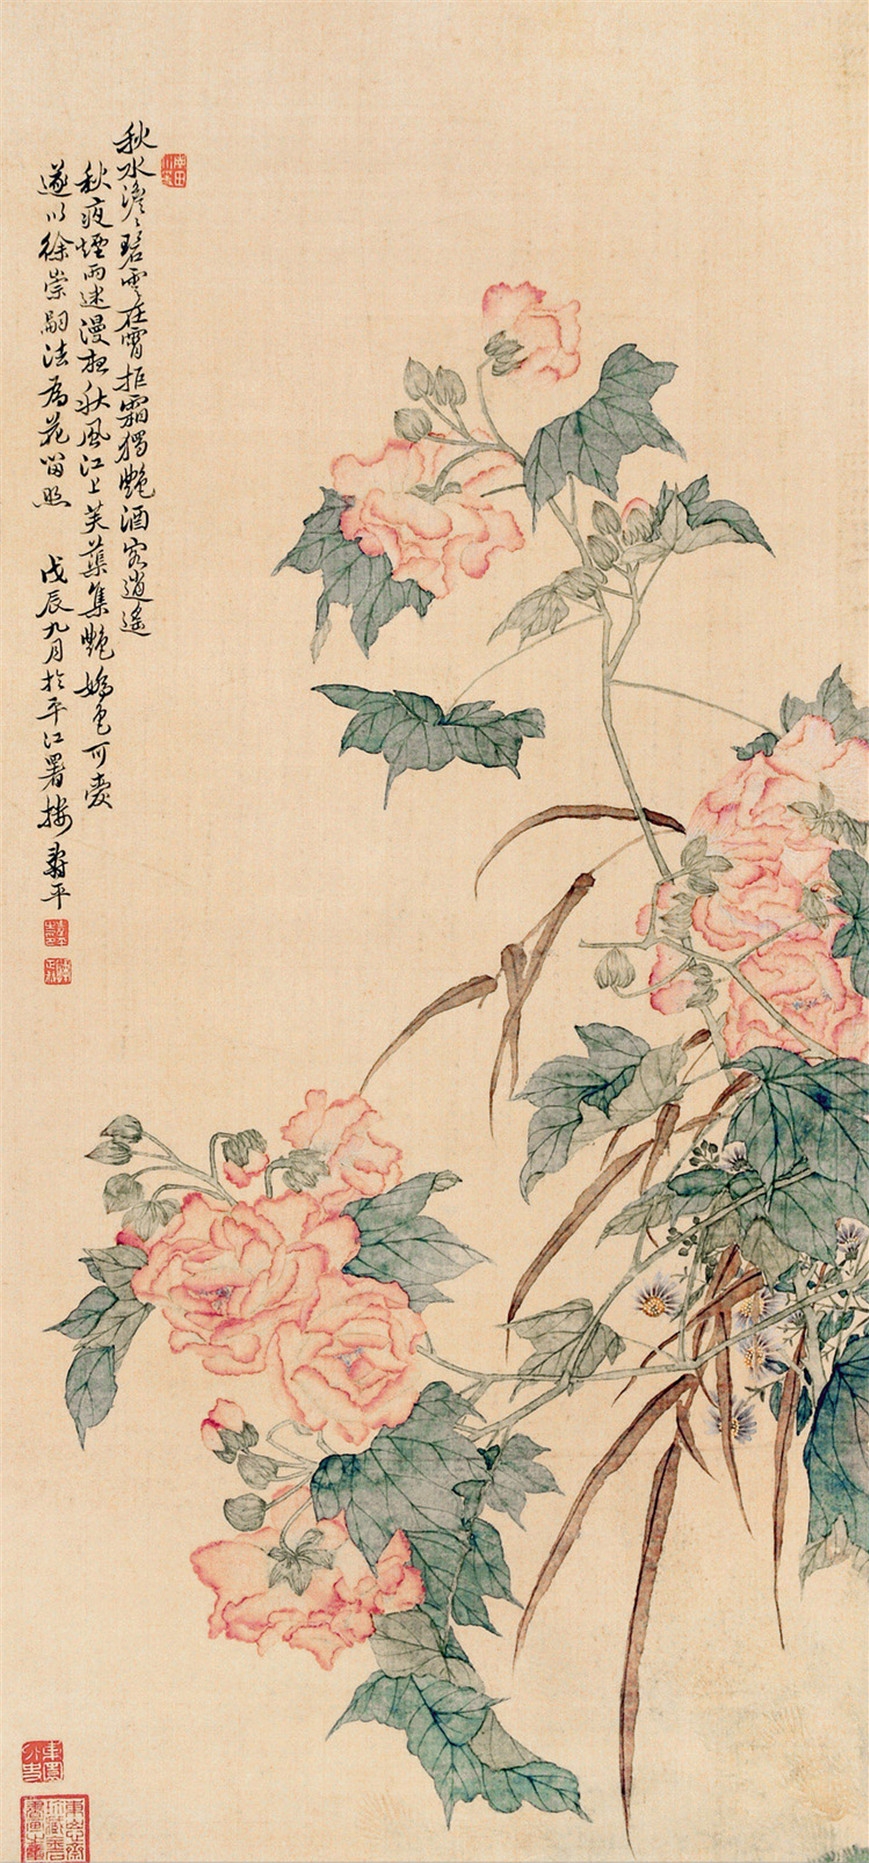 秋水澹澹碧雲在霄拒霜獨艶酒容逍遥
秋夜煙雨迷漫想秋風江上芙蕖集艶嬌色可愛
遂以徐崇嗣法為花留照 戊辰九月於平江署樓 壽平